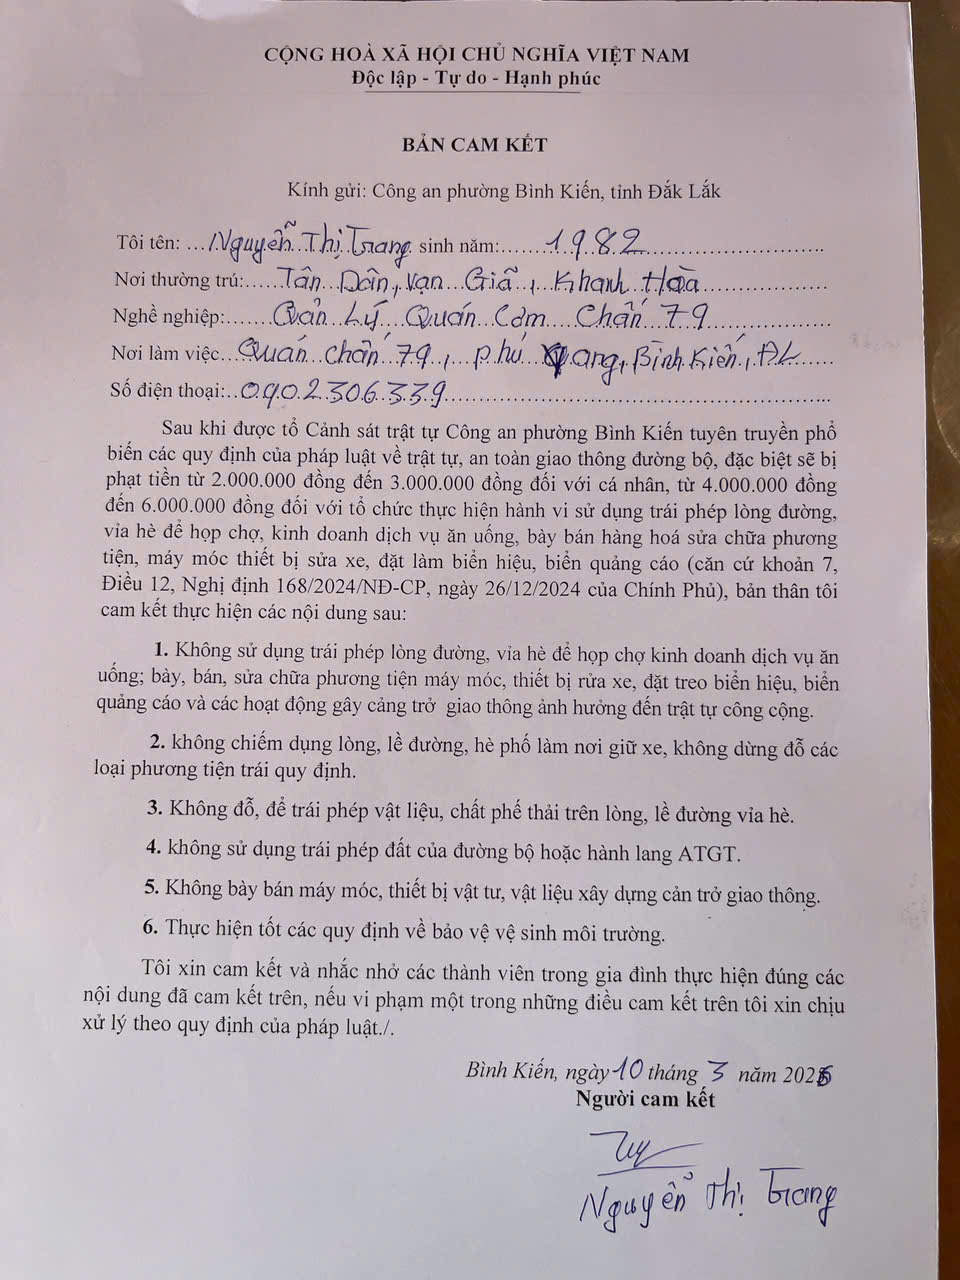 CỘNG HOÀ XÃ HỘI CHỦ NGHĨA VIỆT NAM
Độc lập - Tự do - Hạnh phúc
BẢN CAM KẾT
Kính gửi: Công an phường Bình Kiến, tỉnh Đắk Lắk
Tôi tên: Nguyễn Thị Trang sinh năm: 1982
Nơi thường trú: Tân Dân, Vạn Giã, Khanh Hoà
Nghề nghiệp: Quản Lý Quán Cơm Chấn 79
Nơi làm việc Quán Chấn 79, phú Qang, Bình Kiến, ĐL
Số điện thoại: 0902306339
Sau khi được tổ Cảnh sát trật tự Công an phường Bình Kiến tuyên truyền phổ
biến các quy định của pháp luật về trật tự, an toàn giao thông đường bộ, đặc biệt sẽ bị
phạt tiền từ 2.000.000 đồng đến 3.000.000 đồng đối với cá nhân, từ 4.000.000 đồng
đến 6.000.000 đồng đối với tổ chức thực hiện hành vi sử dụng trái phép lòng đường,
vỉa hè để họp chợ, kinh doanh dịch vụ ăn uống, bày bán hàng hoá sửa chữa phương
tiện, máy móc thiết bị sửa xe, đặt làm biển hiệu, biển quảng cáo (căn cứ khoản 7,
Điều 12, Nghị định 168/2024/NĐ-CP, ngày 26/12/2024 của Chính Phủ), bản thân tôi
cam kết thực hiện các nội dung sau:
1. Không sử dụng trái phép lòng đường, vỉa hè để họp chợ kinh doanh dịch vụ ăn
uống; bày, bán, sửa chữa phương tiện máy móc, thiết bị rửa xe, đặt treo biển hiệu, biển
quảng cáo và các hoạt động gây cảng trở giao thông ảnh hưởng đến trật tự công cộng.
2. không chiếm dụng lòng, lề đường, hè phố làm nơi giữ xe, không dừng đỗ các
loại phương tiện trái quy định.
3. Không đỗ, để trái phép vật liệu, chất phế thải trên lòng, lề đường vỉa hè.
4. không sử dụng trái phép đất của đường bộ hoặc hành lang ATGT.
5. Không bày bán máy móc, thiết bị vật tư, vật liệu xây dựng cản trở giao thông.
6. Thực hiện tốt các quy định về bảo vệ vệ sinh môi trường.
Tôi xin cam kết và nhắc nhở các thành viên trong gia đình thực hiện đúng các
nội dung đã cam kết trên, nếu vi phạm một trong những điều cam kết trên tôi xin chịu
xử lý theo quy định của pháp luật./.
Bình Kiến, ngày 10 tháng 3 năm 2026
Người cam kết
Nguyễn Thị Trang